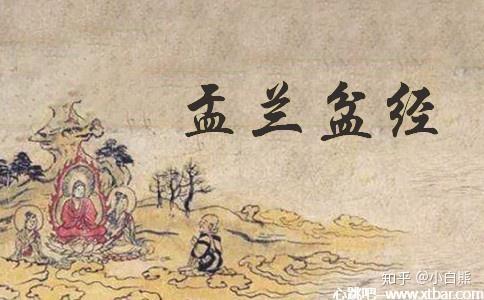 盂兰盆经
知乎 @小白熊
心跳吧 www.xtbar.com